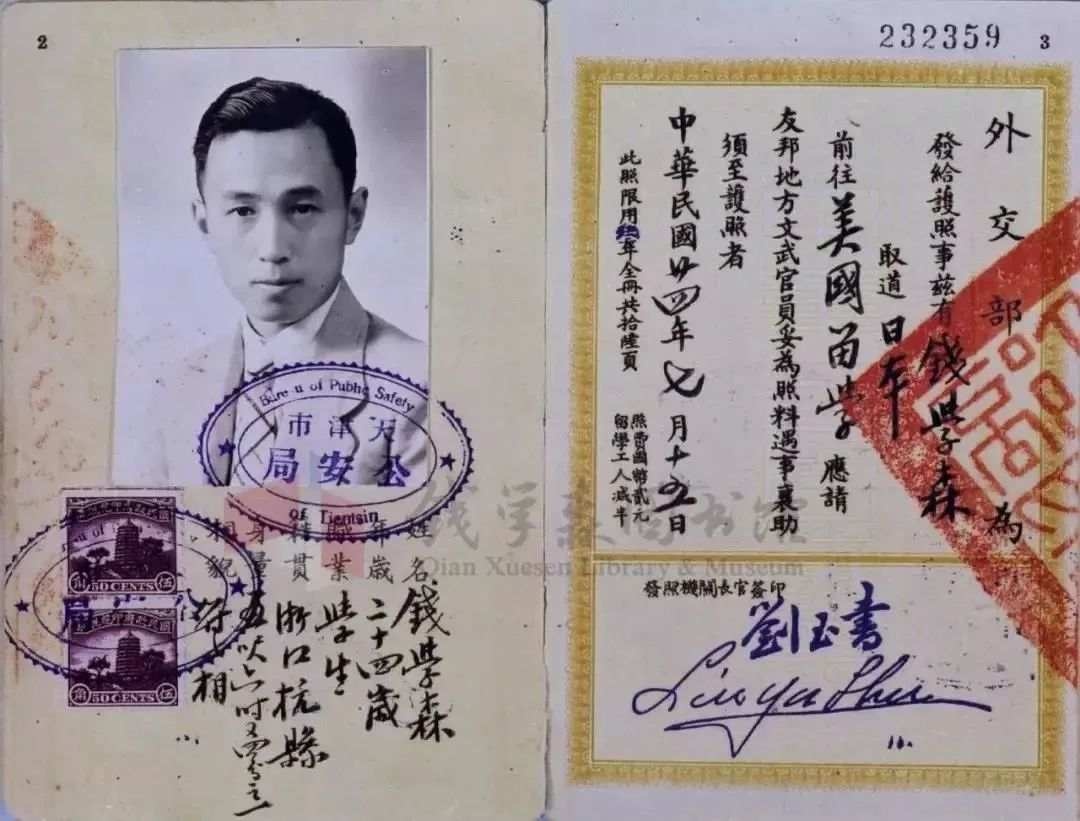 2
Bureau of Public Safety
天津市
公安局
of Tientsin
50 CENTS
50 CENTS
姓名 錢學森
年歲 二十四歲
職業 學生
籍貫 浙江杭縣
身量 五呎六吋又四分之一
相貌 符相
232359
3
外交部為
發給護照事茲有錢學森
取道日本
前往美國留學應請
友邦地方文武官員妥為照料遇事襄助
須至護照者
中華民國廿四年七月十五日
此照限用叁年全冊共拾陸頁
照費國幣貳元
留學工人減半
發照機關長官簽印
劉玉書
Liu Yu Shu
錢學森圖書館
Qian Xuesen Library & Museum